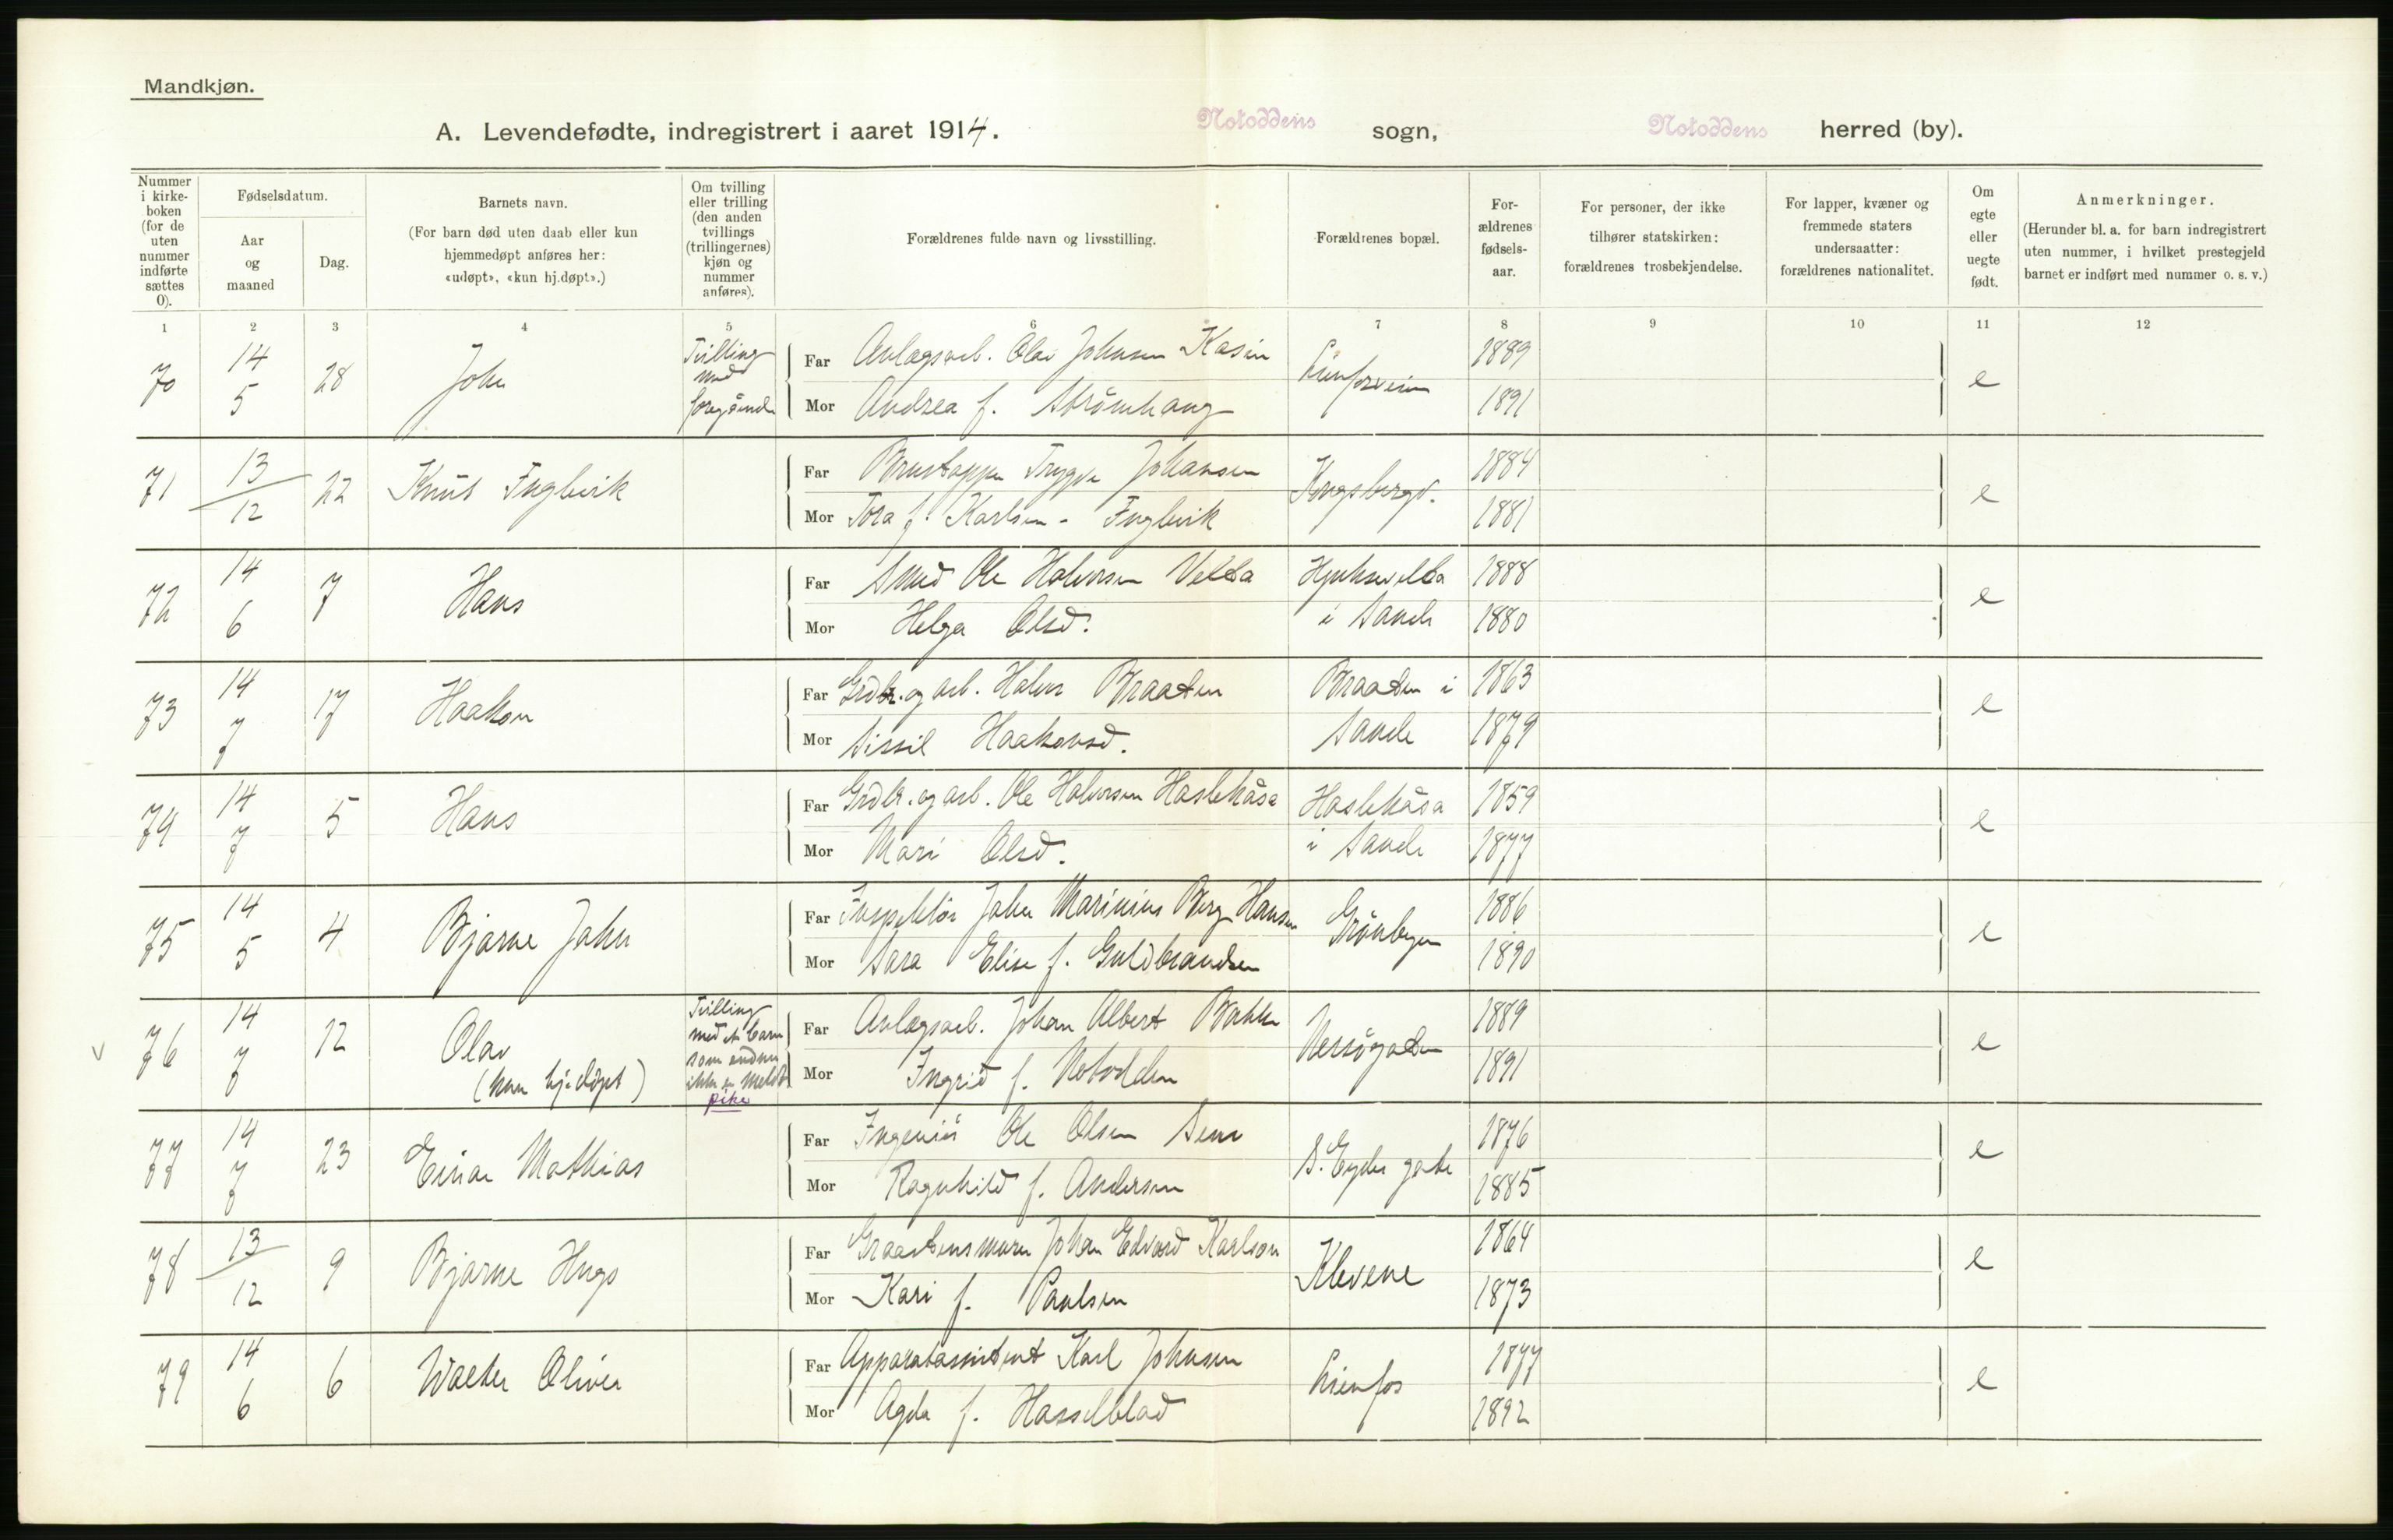 Mandkjøn.
A. Levendefødte, indregistrert i aaret 1914. Notoddens sogn, Notoddens herred (by).
Nummer i kirkeboken (for de uten nummer indførte sættes 0).
Fødselsdatum.
Aar og maaned
Dag.
Barnets navn.
(For barn død uten daab eller kun hjemmedøpt anføres her: «udøpt», «kun hj.døpt».)
Om tvilling eller trilling (den anden tvillings (trillingernes) kjøn og nummer anføres).
Forældrenes fulde navn og livsstilling.
Forældrenes bopæl.
Forældrenes fødselsaar.
For personer, der ikke tilhører statskirken: forældrenes trosbekjendelse.
For lapper, kvæner og fremmede staters undersaatter: forældrenes nationalitet.
Om egte eller uegte født.
Anmerkninger.
(Herunder bl. a. for barn indregistrert uten nummer, i hvilket prestegjeld barnet er indført med nummer o. s. v.)
1 2 3 4 5 6 7 8 9 10 11 12
70 14 5 28 John Tvilling med foregående
Far Anlægsarb. Olav Johnsen Kasin 1889 e
Mor Andrea f. Strömhaug 1891
71 13 12 22 Knut Fuglevik
Far Trygve Johansen Kongsbergv. 1884 e
Mor Tora f. Karlsen - Fuglevik 1881
72 14 6 7 Hans
Far Smed Ole Halvorsen Velta Hjuksevelta 1888 e
Mor Helga Olsd. i Sande 1880
73 14 7 17 Haakon
Far Grdbr. og arb. Halvor Braaten Braaten i 1863 e
Mor Sissil Haakonsd. Sande 1879
74 14 7 5 Hans
Far Grdbr. og arb. Ole Halvorsen Haslekåsa Haslekåsa 1859 e
Mor Mari Olsd. i Sande 1877
75 14 5 4 Bjarne John
Far Inspektör John Marinius Berg-Hansen Grönbyen 1886 e
Mor Sara Elise f. Guldbrandsen 1890
76 14 7 12 Olav (kun hj.döpt) Tvilling med et barn som endnu ikke er meldt pike
Far Anlægsarb. Johan Albert Bakke 1889 e
Mor Ingrid f. Notodden 1891
77 14 7 23 Einar Mathias
Far Ingeniör Ole Olsen Sem S. Eydes gate 1876 e
Mor Ragnhild f. Andersen 1885
78 13 12 9 Bjarne Hugo
Far Graastensmurer Johan Edvard Karlson Klevene 1864 e
Mor Kari f. Paulsen 1873
79 14 6 6 Walter Oliver
Far Apparatassistent Karl Johnsen Lienfos 1877 e
Mor Agda f. Hasselblad 1892